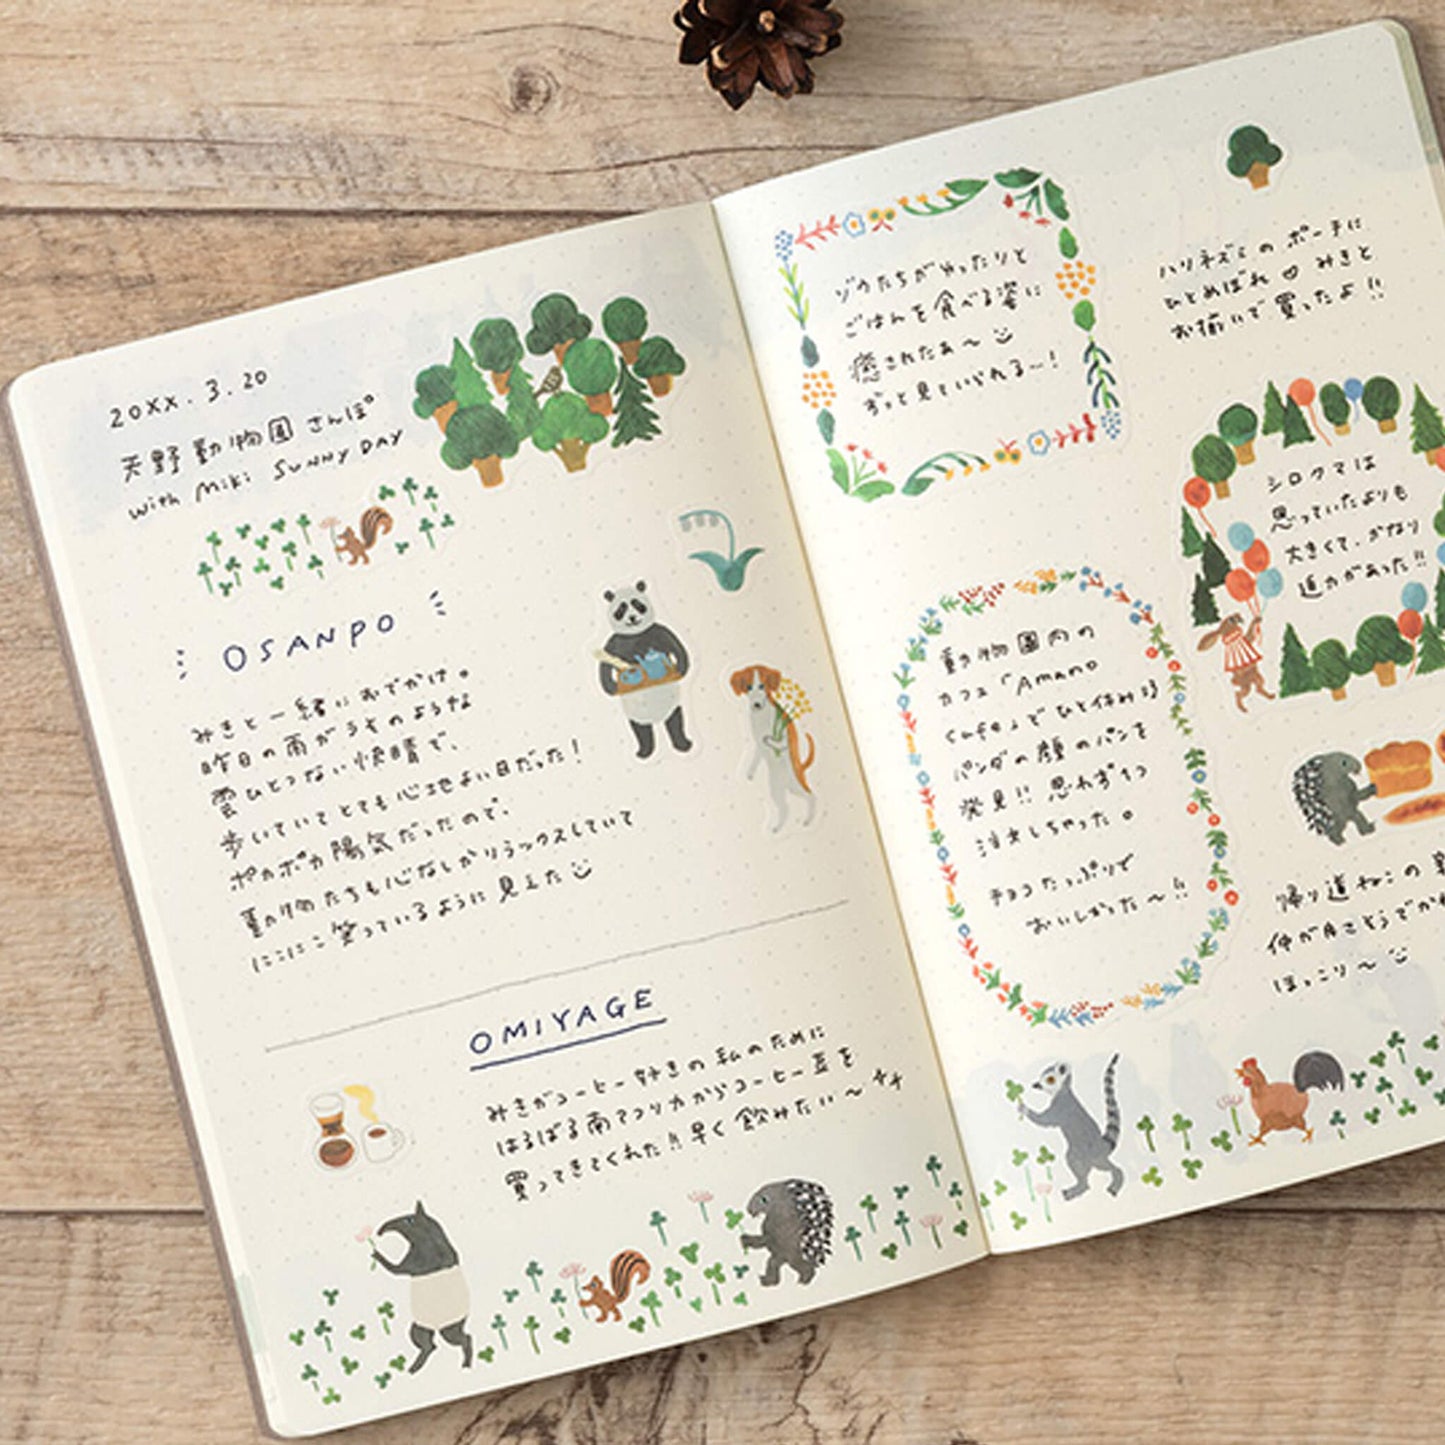 20XX.3.20
天野動物園さんぽ
with Miki SUNNY DAY
OSANPO
みきと一緒におでかけ。
昨日の雨がうそのような
雲ひとつない快晴で、
歩いていてとても心地よい日だった!
ポカポカ陽気だったので、
動物たちも心なしかリラックスしていて
にこにこ笑っているように見えた
OMIYAGE
みきがコーヒー好きの私のために
はるばる南アフリカからコーヒー豆を
買ってきてくれた!!早く飲みたい〜
ゾウたちがゆったりと
ごはんを食べる姿に
癒されたぁ〜
ずっと見ていられる〜!
ハリネズミのポーチに
ひとめぼれ♡みきと
お揃いで買ったよ!!
シロクマは
思っていたよりも
大きくて、かなり
迫力があった!!
動物園内の
カフェ「Amano
cafe」でひと休み
パンダの顔のパンを
発見!!思わず1つ
注文しちゃった。
チョコたっぷりで
おいしかった〜!!
帰り道ねこの
仲が良さそうで
ほっこり〜